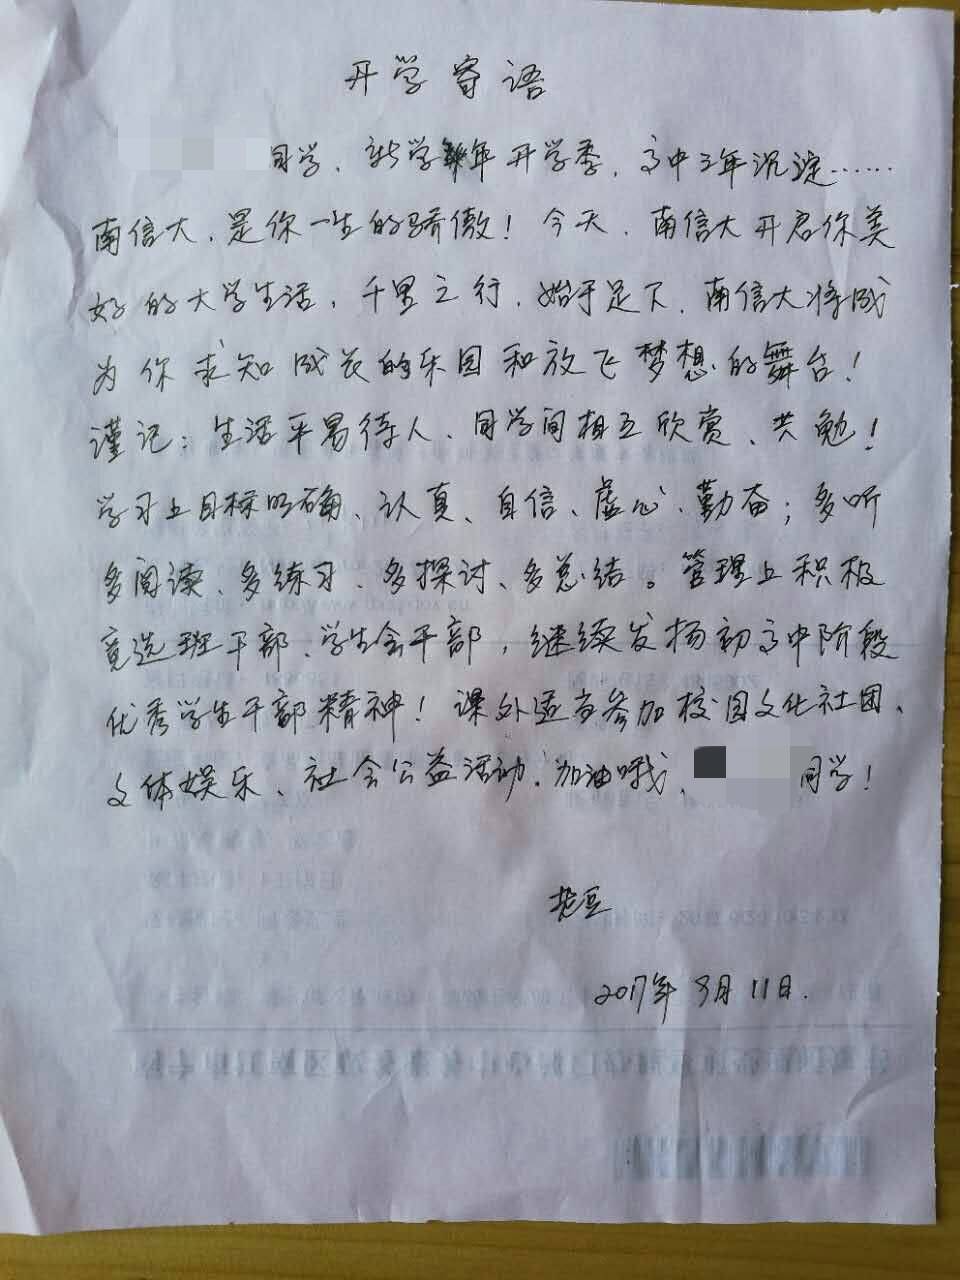 开学寄语
同学、新学年开学季，高中三年沉淀……
南信大、是你一生的骄傲！今天、南信大开启你美
好的大学生活，千里之行，始于足下，南信大将成
为你求知成长的乐园和放飞梦想的舞台！
谨记：生活平易待人、同学间相互欣赏、共勉！
学习上目标明确、认真、自信、虚心、勤奋；多听
多阅读、多练习、多探讨、多总结。管理上积极
竞选班干部、学生会干部，继续发扬初高中阶段
优秀学生干部精神！课外适当参加校园文化社团、
文体娱乐、社会公益活动，加油哦、同学！
2017年9月11日.